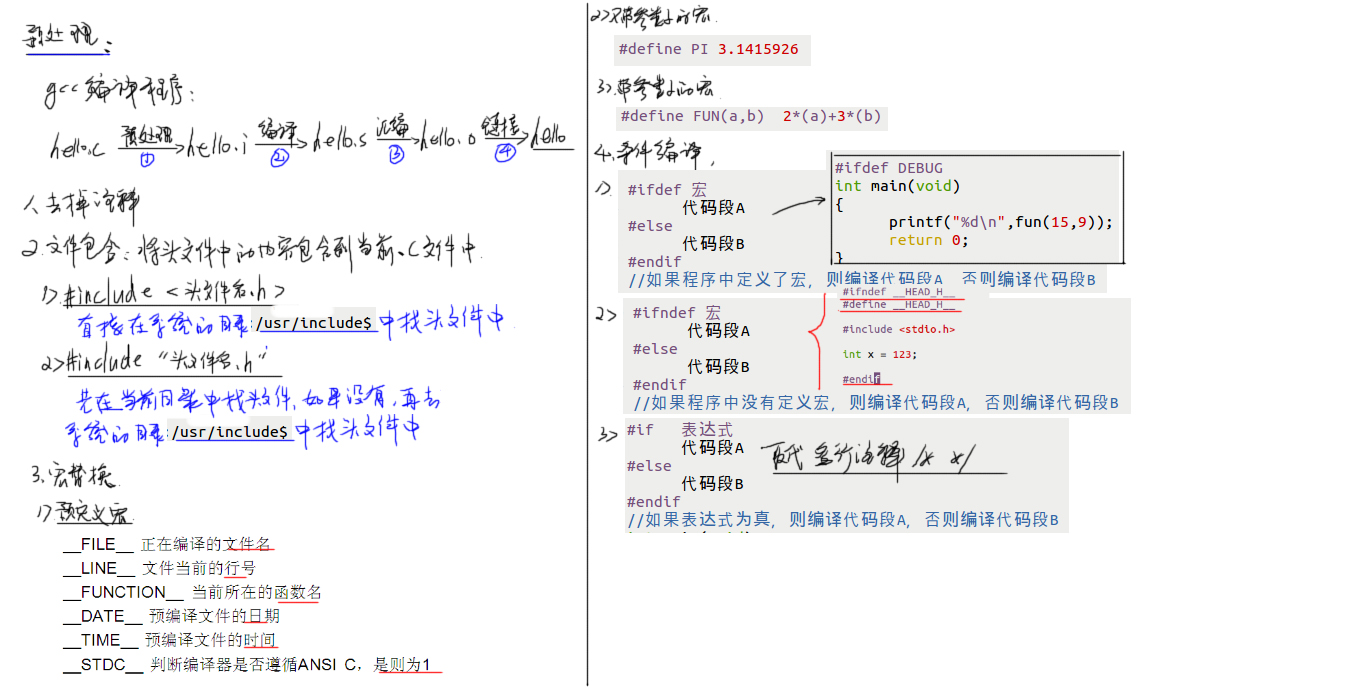 预处理:
gcc编译程序:
hello.c 预处理 ① hello.i 编译 ② hello.s 汇编 ③ hello.o 链接 ④ hello
1.去掉注释
2.文件包含:将头文件中的内容包含到当前.c文件中.
1>.#include <头文件名.h>
直接在系统的目录:/usr/include$ 中找头文件中
2>#include "头文件名.h"
先在当前目录中找头文件,如果没有,再去
系统的目录:/usr/include$ 中找头文件中
3.宏替换.
1>.预定义宏.
__FILE__ 正在编译的文件名
__LINE__ 文件当前的行号
__FUNCTION__ 当前所在的函数名
__DATE__ 预编译文件的日期
__TIME__ 预编译文件的时间
__STDC__ 判断编译器是否遵循ANSI C，是则为1
2>不带参数的宏.
#define PI 3.1415926
3>.带参数的宏.
#define FUN(a,b) 2*(a)+3*(b)
4.条件编译,
1>.
#ifdef 宏
代码段A
#else
代码段B
#endif
//如果程序中定义了宏, 则编译代码段A 否则编译代码段B
#ifdef DEBUG
int main(void)
{
printf("%d\n",fun(15,9));
return 0;
}
2>
#ifndef 宏
代码段A
#else
代码段B
#endif
//如果程序中没有定义宏, 则编译代码段A, 否则编译代码段B
#ifndef __HEAD_H__
#define __HEAD_H__
#include <stdio.h>
int x = 123;
#endif
3>
#if 表达式
代码段A
#else
代码段B
#endif
//如果表达式为真, 则编译代码段A, 否则编译代码段B
取代多行注释/* */